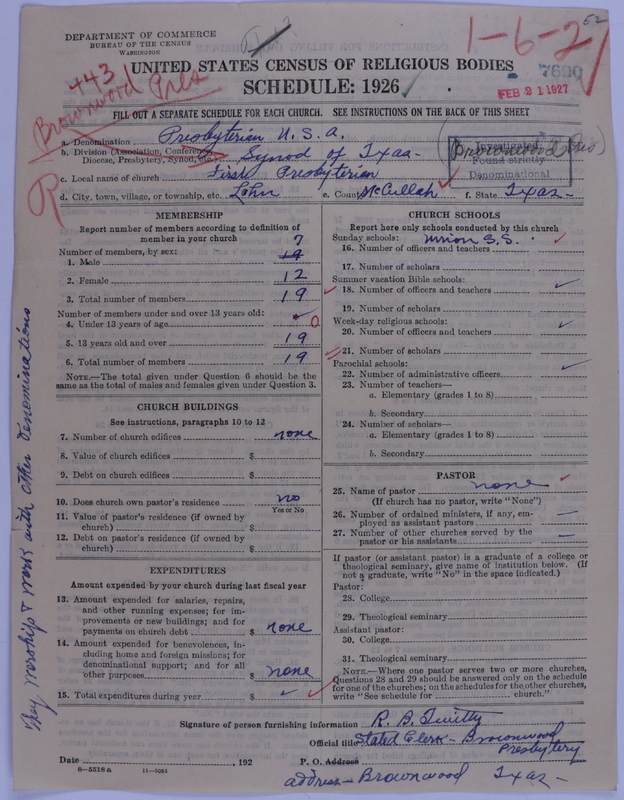 DEPARTMENT OF COMMERCE
BUREAU OF THE CENSUS
WASHINGTON
1-6-2
52
7690
FEB 21 1927
443
Brownwood Pres
UNITED STATES CENSUS OF RELIGIOUS BODIES
SCHEDULE: 1926
FILL OUT A SEPARATE SCHEDULE FOR EACH CHURCH. SEE INSTRUCTIONS ON THE BACK OF THIS SHEET
a. Denomination Presbyterian U.S.A.
b. Division (Association, Conference, Diocese, Presbytery, Synod, etc.) Synod of Texas
(Brownwood Pres)
Investigated
Found strictly
Denominational
c. Local name of church First Presbyterian
d. City, town, village, or township, etc. Lohn e. County McCullah f. State Texas
R
MEMBERSHIP
Report number of members according to definition of
member in your church
Number of members, by sex:
1. Male 19 7
2. Female 12
3. Total number of members 19
Number of members under and over 13 years old:
4. Under 13 years of age 0
5. 13 years old and over 19
6. Total number of members 19
NOTE.—The total given under Question 6 should be
same as the total of males and females given under Question 3.
CHURCH BUILDINGS
See instructions, paragraphs 10 to 12
7. Number of church edifices none
8. Value of church edifices $
9. Debt on church edifices $
10. Does church own pastor's residence no
Yes or No
11. Value of pastor's residence (if owned by
church) $
12. Debt on pastor's residence (if owned by
church) $
EXPENDITURES
Amount expended by your church during last fiscal year
13. Amount expended for salaries, repairs,
and other running expenses; for im-
provements or new buildings; and for
payments on church debt $ none
14. Amount expended for benevolences, in-
cluding home and foreign missions; for
denominational support; and for all
other purposes $ none
15. Total expenditures during year $
CHURCH SCHOOLS
Report here only schools conducted by this church
Sunday schools: union S.S.
16. Number of officers and teachers
17. Number of scholars
Summer vacation Bible schools:
18. Number of officers and teachers
19. Number of scholars
Week-day religious schools:
20. Number of officers and teachers
21. Number of scholars
Parochial schools:
22. Number of administrative officers
23. Number of teachers—
a. Elementary (grades 1 to 8)
b. Secondary
24. Number of scholars—
a. Elementary (grades 1 to 8)
b. Secondary
PASTOR
25. Name of pastor none
(If church has no pastor, write "None")
26. Number of ordained ministers, if any, em-
ployed as assistant pastors —
27. Number of other churches served by the
pastor or his assistants —
If pastor (or assistant pastor) is a graduate of a college or
theological seminary, give name of institution below. (If
not a graduate, write "No" in the space indicated.)
Pastor:
28. College
29. Theological seminary
Assistant pastor:
30. College
31. Theological seminary
NOTE.—Where one pastor serves two or more churches,
Questions 28 and 29 should be answered only on the schedule
for one of the churches; on the schedules for the other churches,
write "See schedule for church."
They worship & work with other Denominations
Signature of person furnishing information R. B. Twitty
Official title Stated Clerk - Brownwood
Presbytery
Date , 192 P. O. Address
address - Brownwood Texas
8—5518 a 11—9051